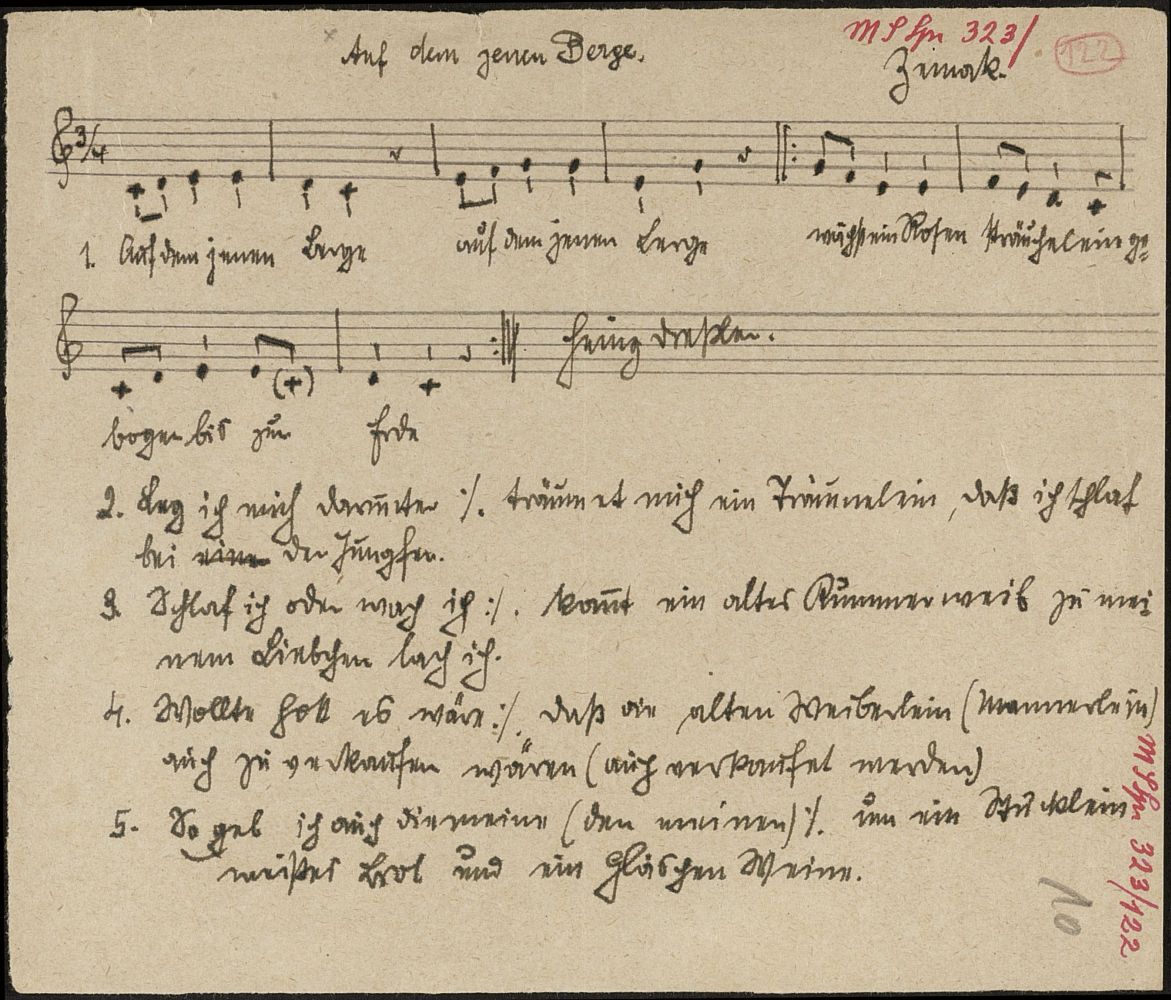 Auf dem jenen Berge.
MS Spr 323/
122
Zrmak.
3/4
1. Auf dem jenen Berge auf dem jenen Berge wächst ein Rosen sträuchelein ge=
bogen bis zur Erde
2. Leg ich mich darunter :/. träumet mich ein Träumelein, daß ich schlaf
bei eine der Jungfer.
3. Schlaf ich oder wach ich :/. kommt ein altes Kummerweib zu mei
nem Liebchen lach ich.
4. Wollte Gott es wäre :/. daß die alten Weiberlein (Mannerlein)
auch zu verkaufen wären (auch verkaufet werden)
5. So geb ich auch die meine (den meinen) :/. um ein Stücklein
weißes Brot und ein Gläschen Weine.
323/122
10